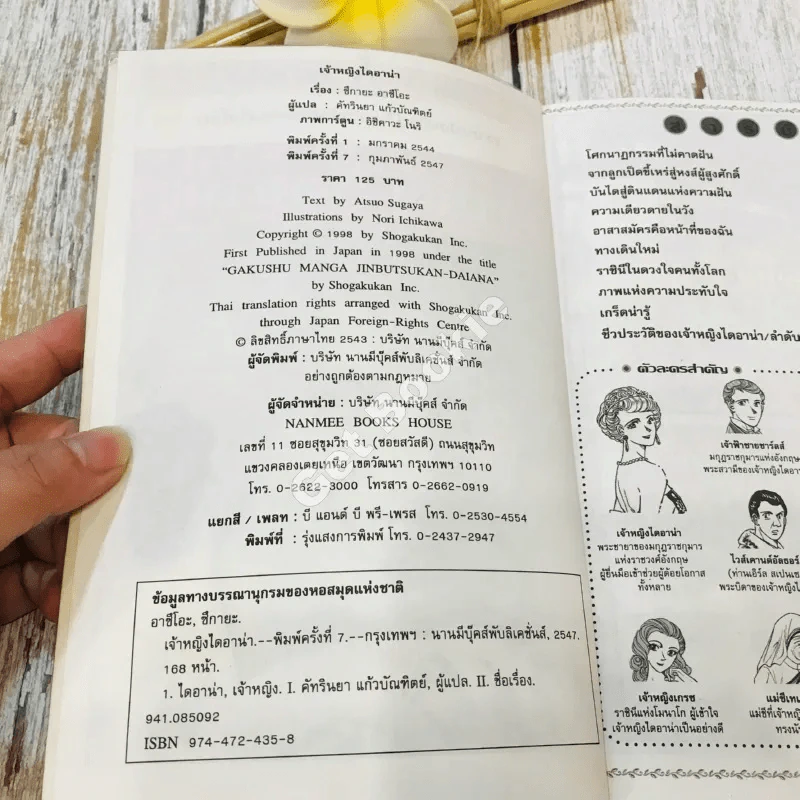 เจ้าหญิงไดอาน่า
เรื่อง : ซึกายะ อาซึโอะ
ผู้แปล : คัทรินยา แก้วบัณฑิตย์
ภาพการ์ตูน : อิชิคาวะ โนริ
พิมพ์ครั้งที่ 1 : มกราคม 2544
พิมพ์ครั้งที่ 7 : กุมภาพันธ์ 2547
ราคา 125 บาท
Text by Atsuo Sugaya
Illustrations by Nori Ichikawa
Copyright © 1998 by Shogakukan Inc.
First Published in Japan in 1998 under the title
"GAKUSHU MANGA JINBUTSUKAN-DAIANA"
by Shogakukan Inc.
Thai translation rights arranged with Shogakukan Inc.
through Japan Foreign-Rights Centre
© ลิขสิทธิ์ภาษาไทย 2543 : บริษัท นานมีบุ๊คส์ จำกัด
ผู้จัดพิมพ์ : บริษัท นานมีบุ๊คส์พับลิเคชั่นส์ จำกัด
อย่างถูกต้องตามกฎหมาย
ผู้จัดจำหน่าย : บริษัท นานมีบุ๊คส์ จำกัด
NANMEE BOOKS HOUSE
เลขที่ 11 ซอยสุขุมวิท 31 (ซอยสวัสดี) ถนนสุขุมวิท
แขวงคลองเตยเหนือ เขตวัฒนา กรุงเทพฯ 10110
โทร. 0-2622-3000 โทรสาร 0-2662-0919
แยกสี / เพลท : บี แอนด์ บี พรี-เพรส โทร. 0-2530-4554
พิมพ์ที่ : รุ่งแสงการพิมพ์ โทร. 0-2437-2947
ข้อมูลทางบรรณานุกรมของหอสมุดแห่งชาติ
อาซึโอะ, ซึกายะ.
เจ้าหญิงไดอาน่า.--พิมพ์ครั้งที่ 7.--กรุงเทพฯ : นานมีบุ๊คส์พับลิเคชั่นส์, 2547.
168 หน้า.
1. ไดอาน่า, เจ้าหญิง. I. คัทรินยา แก้วบัณฑิตย์, ผู้แปล. II. ชื่อเรื่อง.
941.085092
ISBN 974-472-435-8
Get Bookie
ส า ร
โศกนาฏกรรมที่ไม่คาดฝัน
จากลูกเป็ดขี้เหร่สู่หงส์ผู้สูงศักดิ์
บันไดสู่ดินแดนแห่งความฝัน
ความเดียวดายในวัง
อาสาสมัครคือหน้าที่ของฉัน
ทางเดินใหม่
ราชินีในดวงใจคนทั้งโลก
ภาพแห่งความประทับใจ
เกร็ดน่ารู้
ชีวประวัติของเจ้าหญิงไดอาน่า/ลำดับ
ตัวละครสำคัญ
เจ้าฟ้าชายชาร์ลส์
มกุฎราชกุมารแห่งอังกฤษ
พระสวามีของเจ้าหญิงไดอา
เจ้าหญิงไดอาน่า
พระชายาของมกุฎราชกุมาร
แห่งราชวงศ์อังกฤษ
ผู้ยื่นมือเข้าช่วยผู้ด้อยโอกาส
ทั้งหลาย
ไวส์เคานต์อัลธอร์
(ท่านเอิร์ล สเปนเซ
พระบิดาของเจ้าหญิงไ
เจ้าหญิงเกรซ
ราชินีแห่งโมนาโก ผู้เข้าใจ
เจ้าหญิงไดอาน่าเป็นอย่างดี
แม่ชีเท
แม่ชีที่เจ้าหญิ
ทรงนั